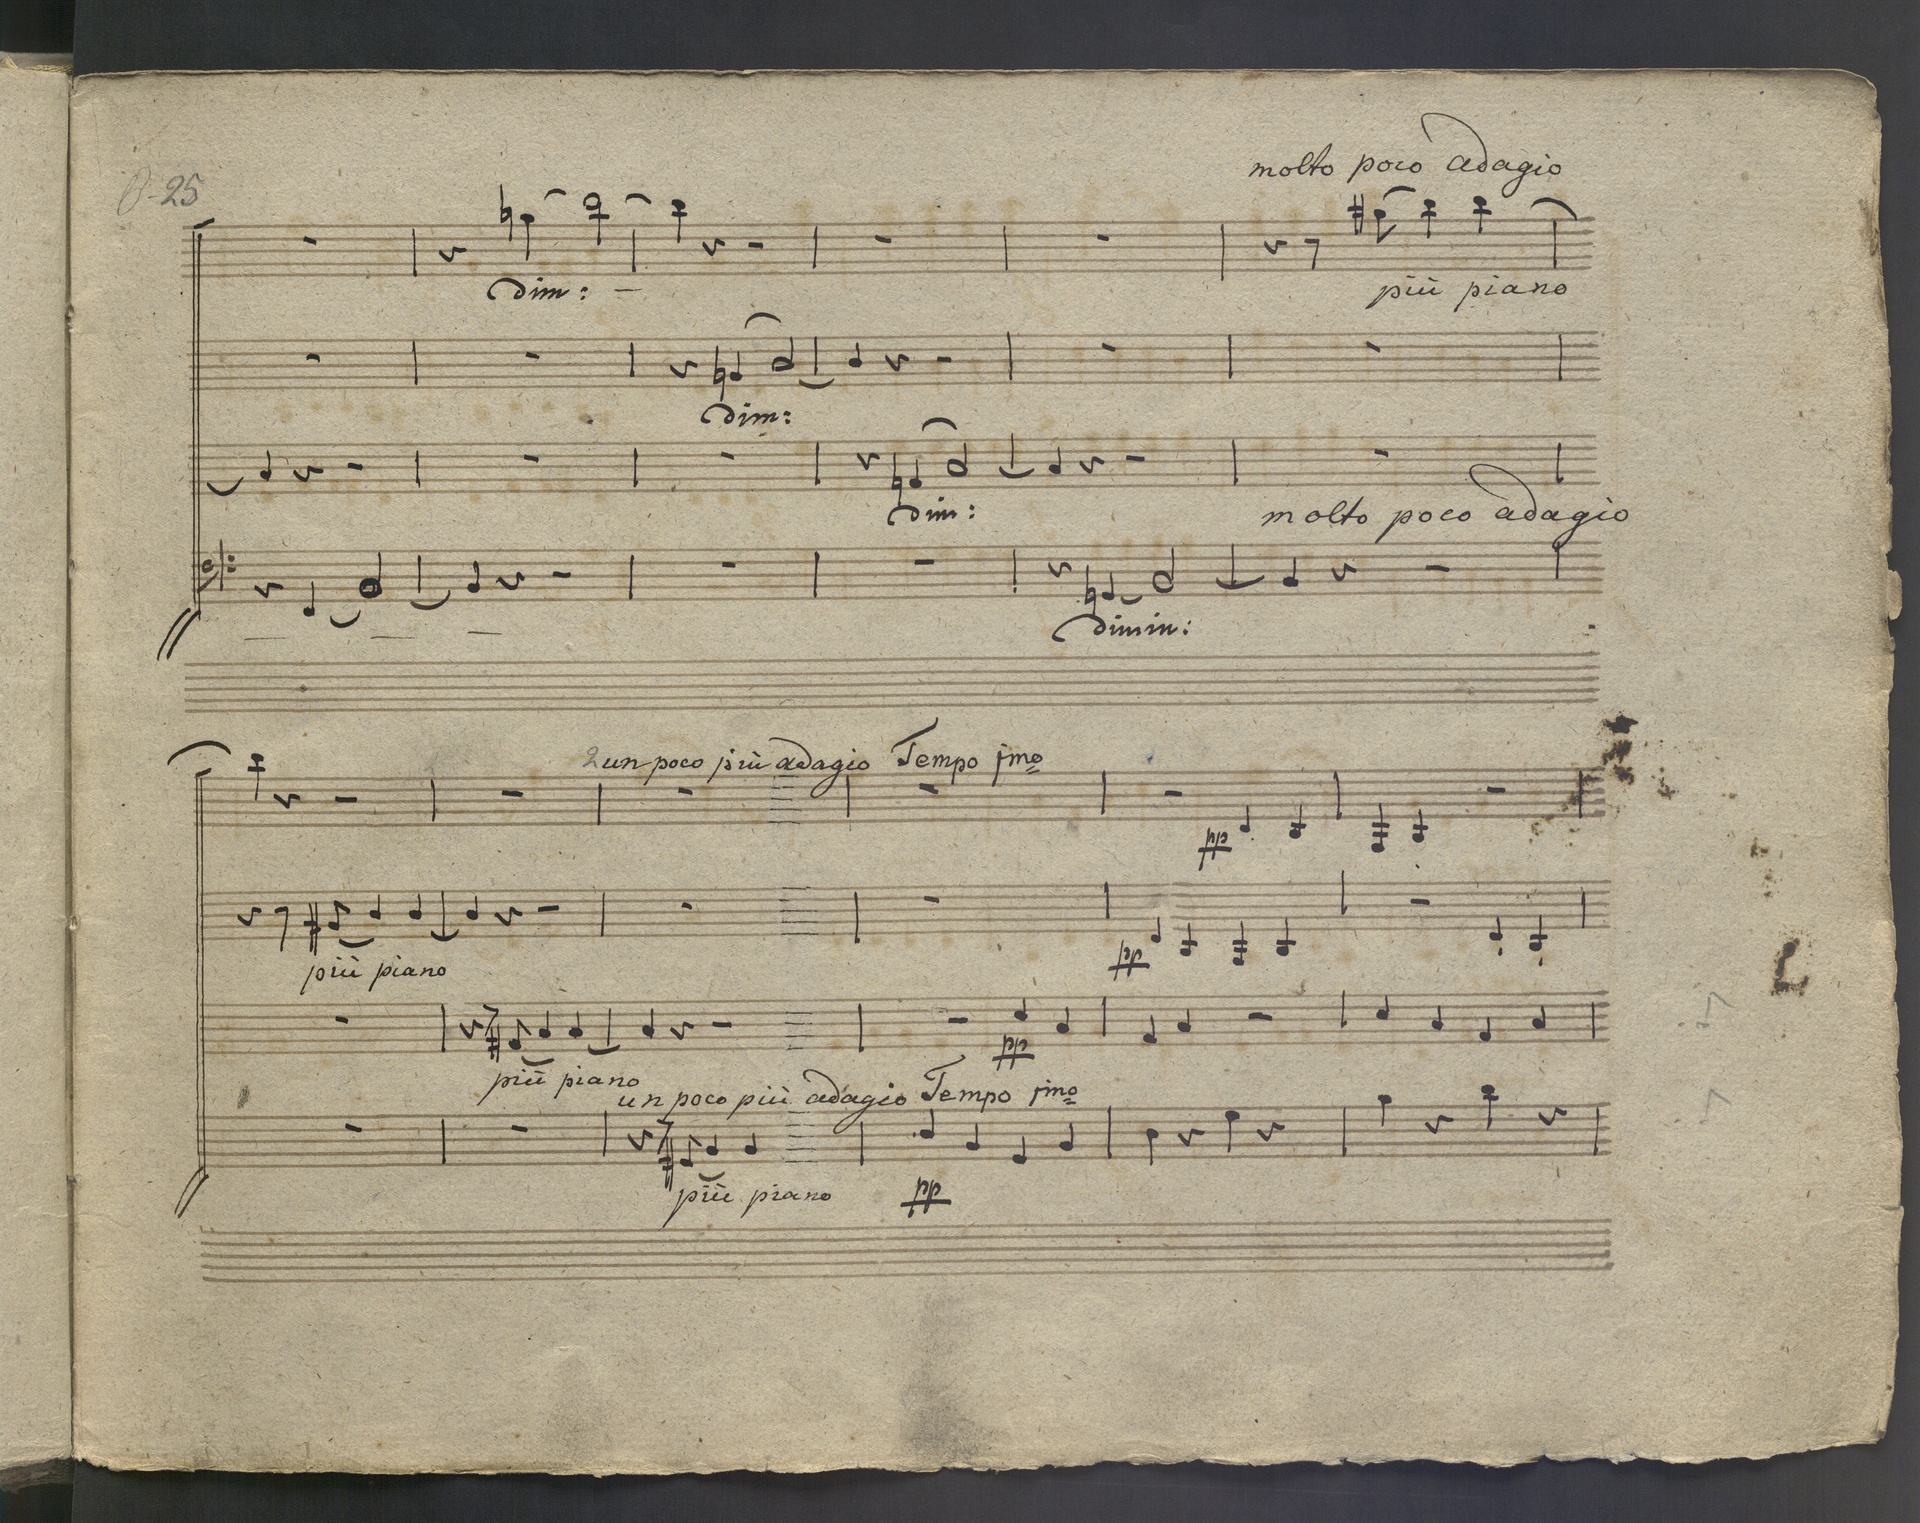 25
molto poco adagio
dim:
più piano
dim:
dim:
molto poco adagio
dimin:
2 un poco più adagio Tempo jmo
pp
più piano
pp
pp
più piano
un poco più adagio Tempo jmo
più piano
pp